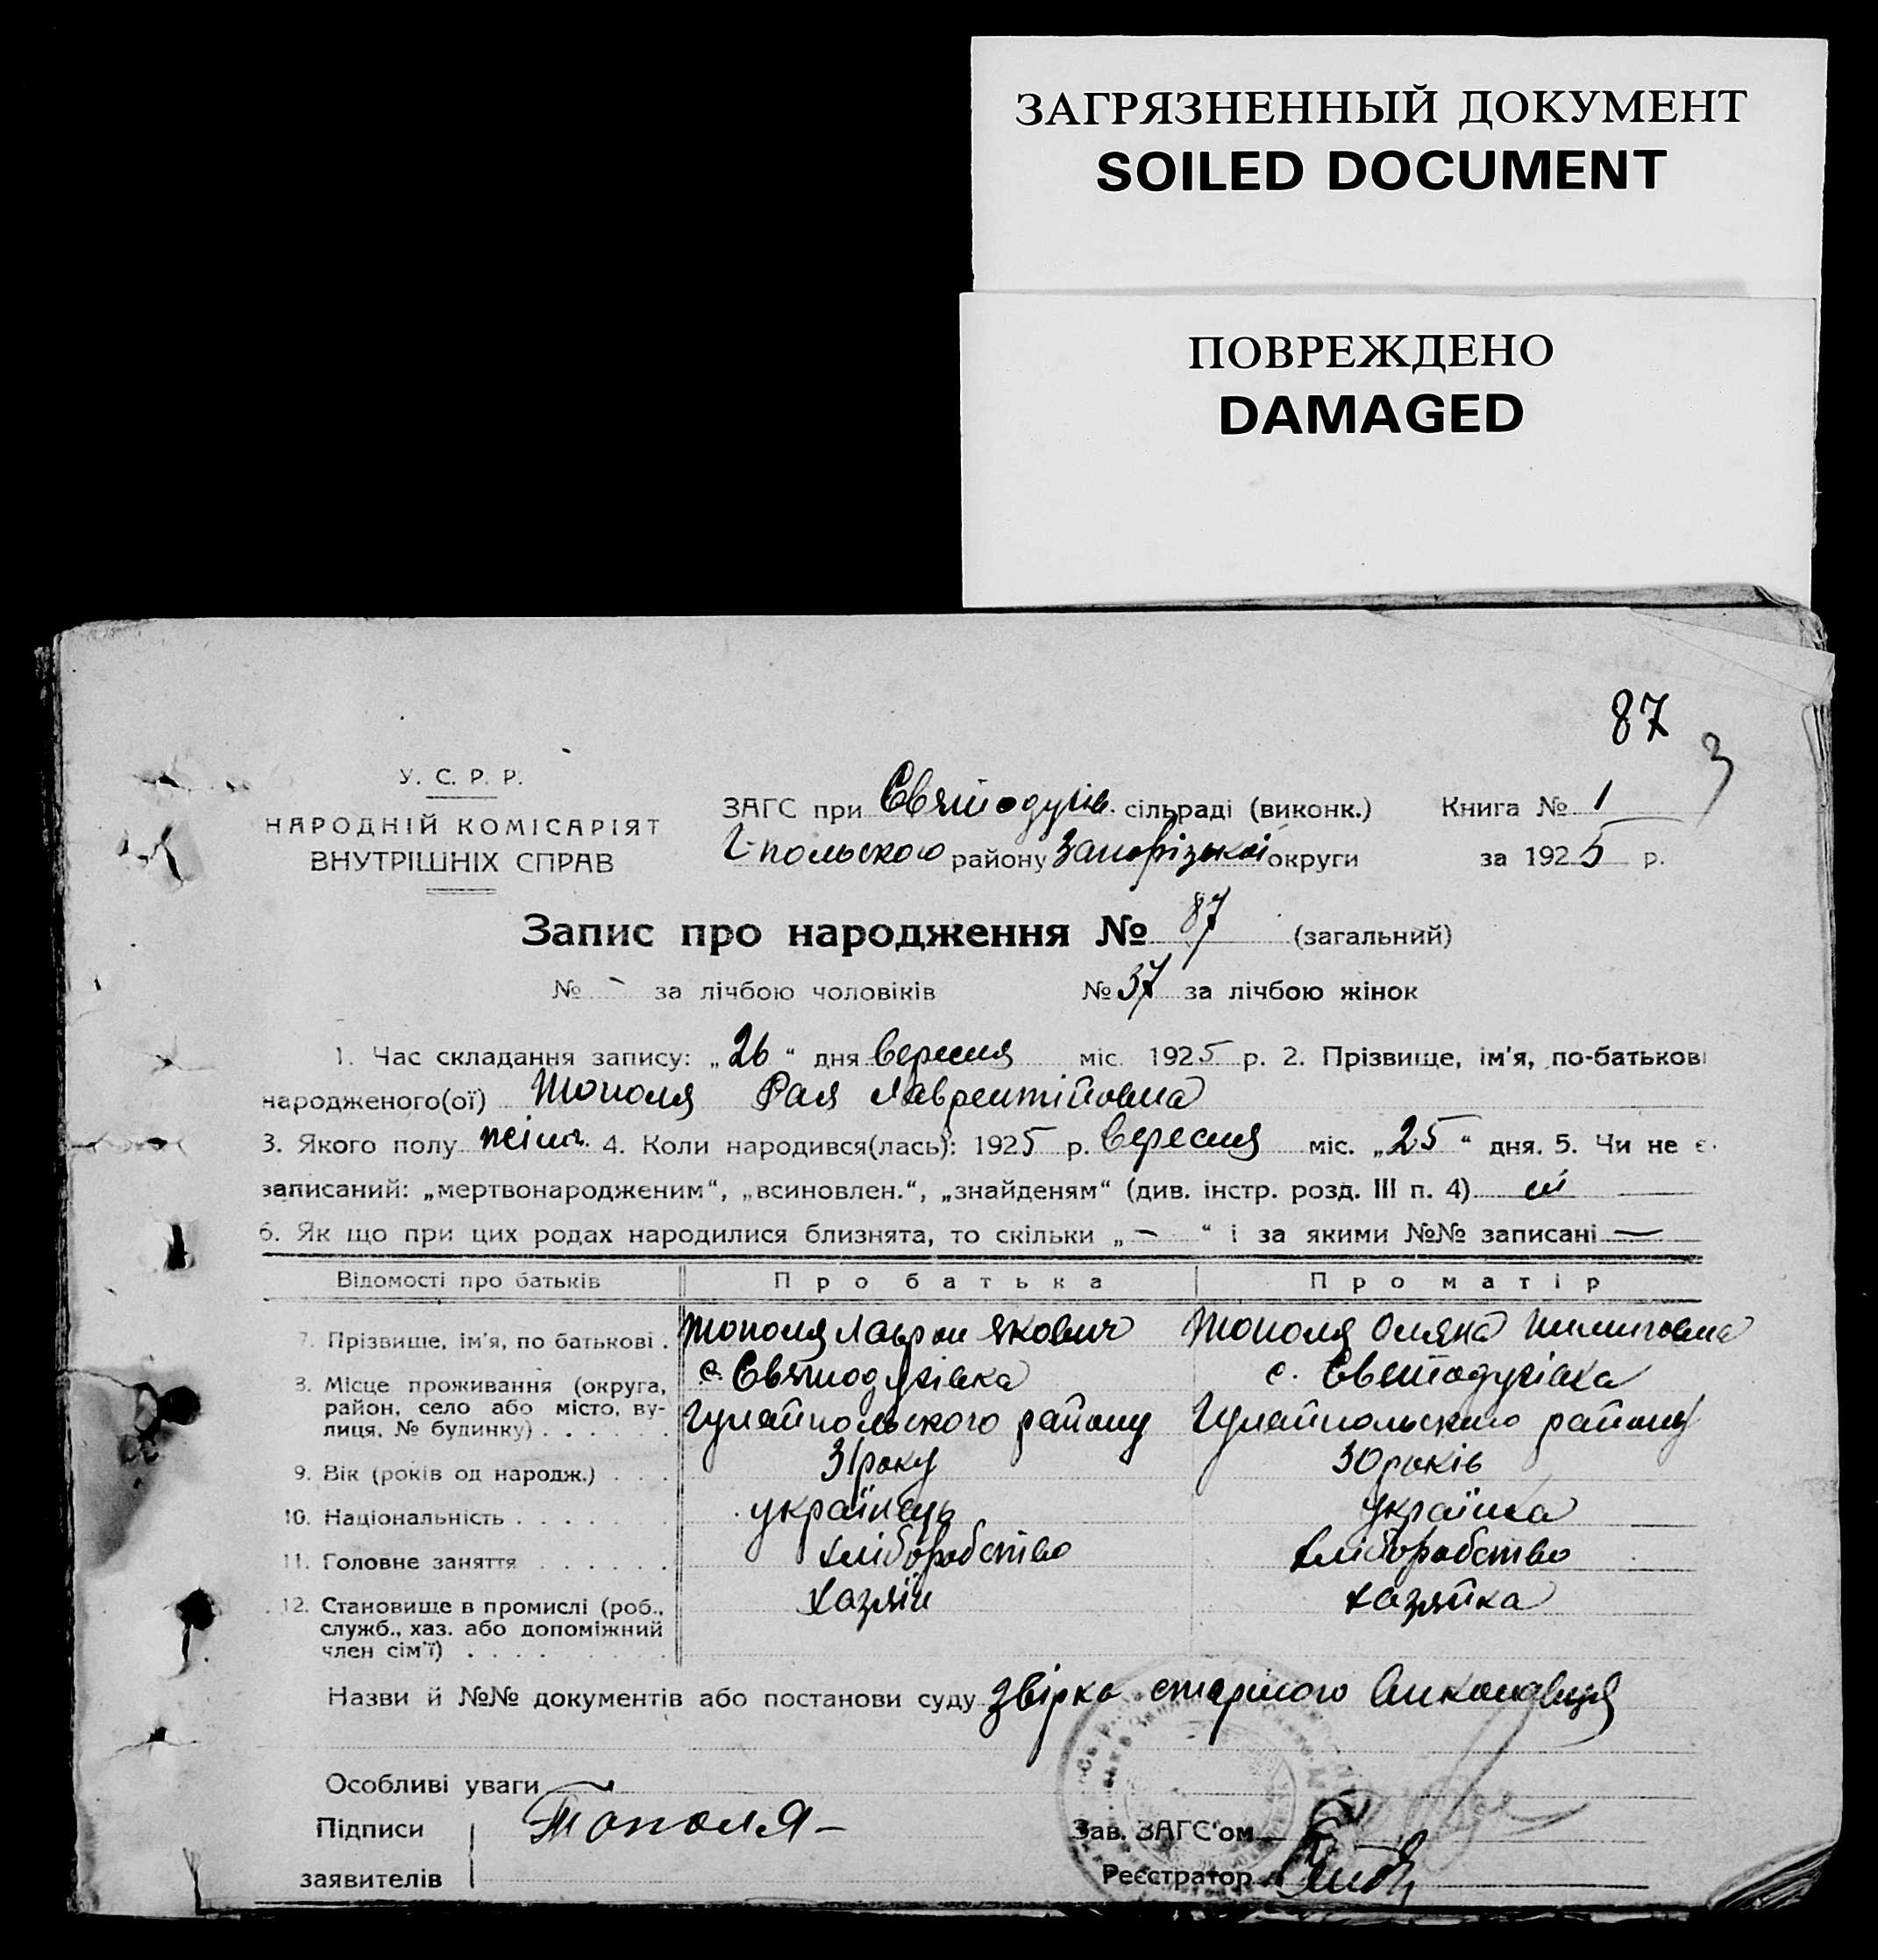 ЗАГРЯЗНЕННЫЙ ДОКУМЕНТ
SOILED DOCUMENT
ПОВРЕЖДЕНО
DAMAGED
87
3
У. С. Р. Р.
НАРОДНІЙ КОМІСАРІЯТ
ВНУТРІШНІХ СПРАВ
ЗАГС при Святодухів. сільраді (виконк.) Книга № 1
Г-польского району Запорізької округи за 1925 р.
Запис про народження № 87 (загальний)
№ - за лічбою чоловіків № 37 за лічбою жінок
1. Час складання запису: „26“ дня вересня міс. 1925 р. 2. Прізвище, ім'я, по-батькові
народженого(ої) Тополя Рая Лаврентійовна
3. Якого полу жіноч. 4. Коли народився(лась): 1925 р. вересня міс. „25“ дня. 5. Чи не є
записаний: „мертвонародженим“, „всиновлен.“, „знайденям“ (див. інстр. розд. III п. 4) ні
6. Як що при цих родах народилися близнята, то скільки „-“ і за якими №№ записані —
Відомості про батьків Про батька Про матір
7. Прізвище, ім'я, по батькові . Тополя Лаврен Якович Тополя Оляна
8. Місце проживання (округа, с. Святодухівка с. Светодухівка
район, село або місто, ву-
лиця, № будинку) . . . . . . Гуляйпольского району Гуляйпольского району
9. Вік (років од народж.) . . . 31 року 30 років
10. Національність . . . . . . . українець українка
11. Головне заняття . . . . . . хліборобство хліборобство
12. Становище в промислі (роб., хазяїн хазяйка
служб., хаз. або допоміжний
член сім'ї) . . . . . . . . .
Назви й №№ документів або постанови суду звірка старшого виконавця
Особливі уваги
Підписи Тополя - Зав. ЗАГС'ом
заявителів Реєстратор